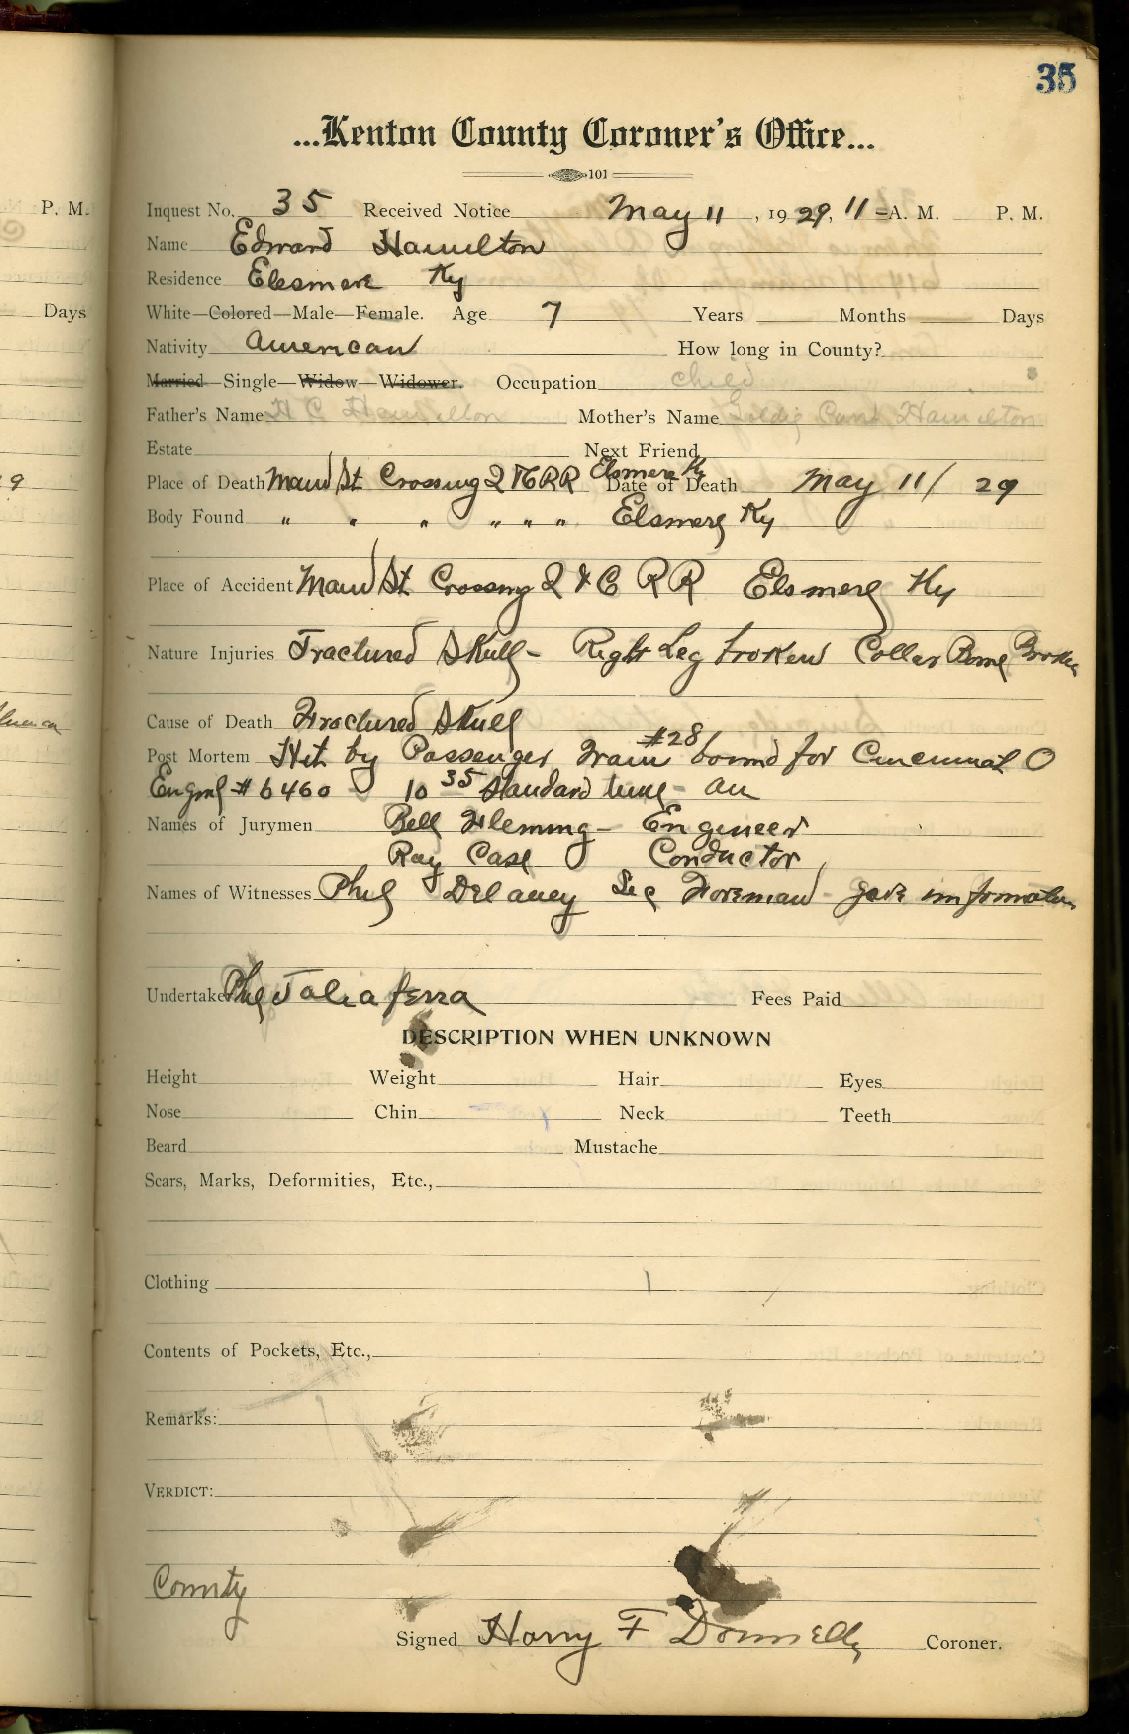 35
...Kenton County Coroner's Office...
101
P. M.
Inquest No. 35 Received Notice May 11, 1929, 11 A. M. P. M.
Name Edward Hamilton
Residence Elesmere Ky
Days
White—Colored—Male—Female. Age 7 Years Months Days
Nativity American How long in County?
Married—Single—Widow—Widower. Occupation child
Father's Name H C Hamilton Mother's Name Goldie Hamilton
Estate Next Friend
9
Place of Death St Crossing RR Elsmere Ky Date of Death May 11/29
Body Found " " " " " " Elsmere Ky
Place of Accident St Crossing & C RR Elsmere Ky
Nature Injuries Fractured Skull - Right Leg broken Coller Bone Broken
Cause of Death Fractured Skull
Post Mortem Hit by Passenger Train #28 bound for Cincinnati O
Engine # 6460 10 35 Standard time - am
Names of Jurymen Bell Fleming - Engineer
Ray Case Conductor
Names of Witnesses Phil Delaney Sec Foreman - gave information
Undertaker Phil Taliaferra Fees Paid
DESCRIPTION WHEN UNKNOWN
Height Weight Hair Eyes
Nose Chin Neck Teeth
Beard Mustache
Scars, Marks, Deformities, Etc.,
Clothing
Contents of Pockets, Etc.,
Remarks:
VERDICT:
County
Signed Harry F Donnelly Coroner.